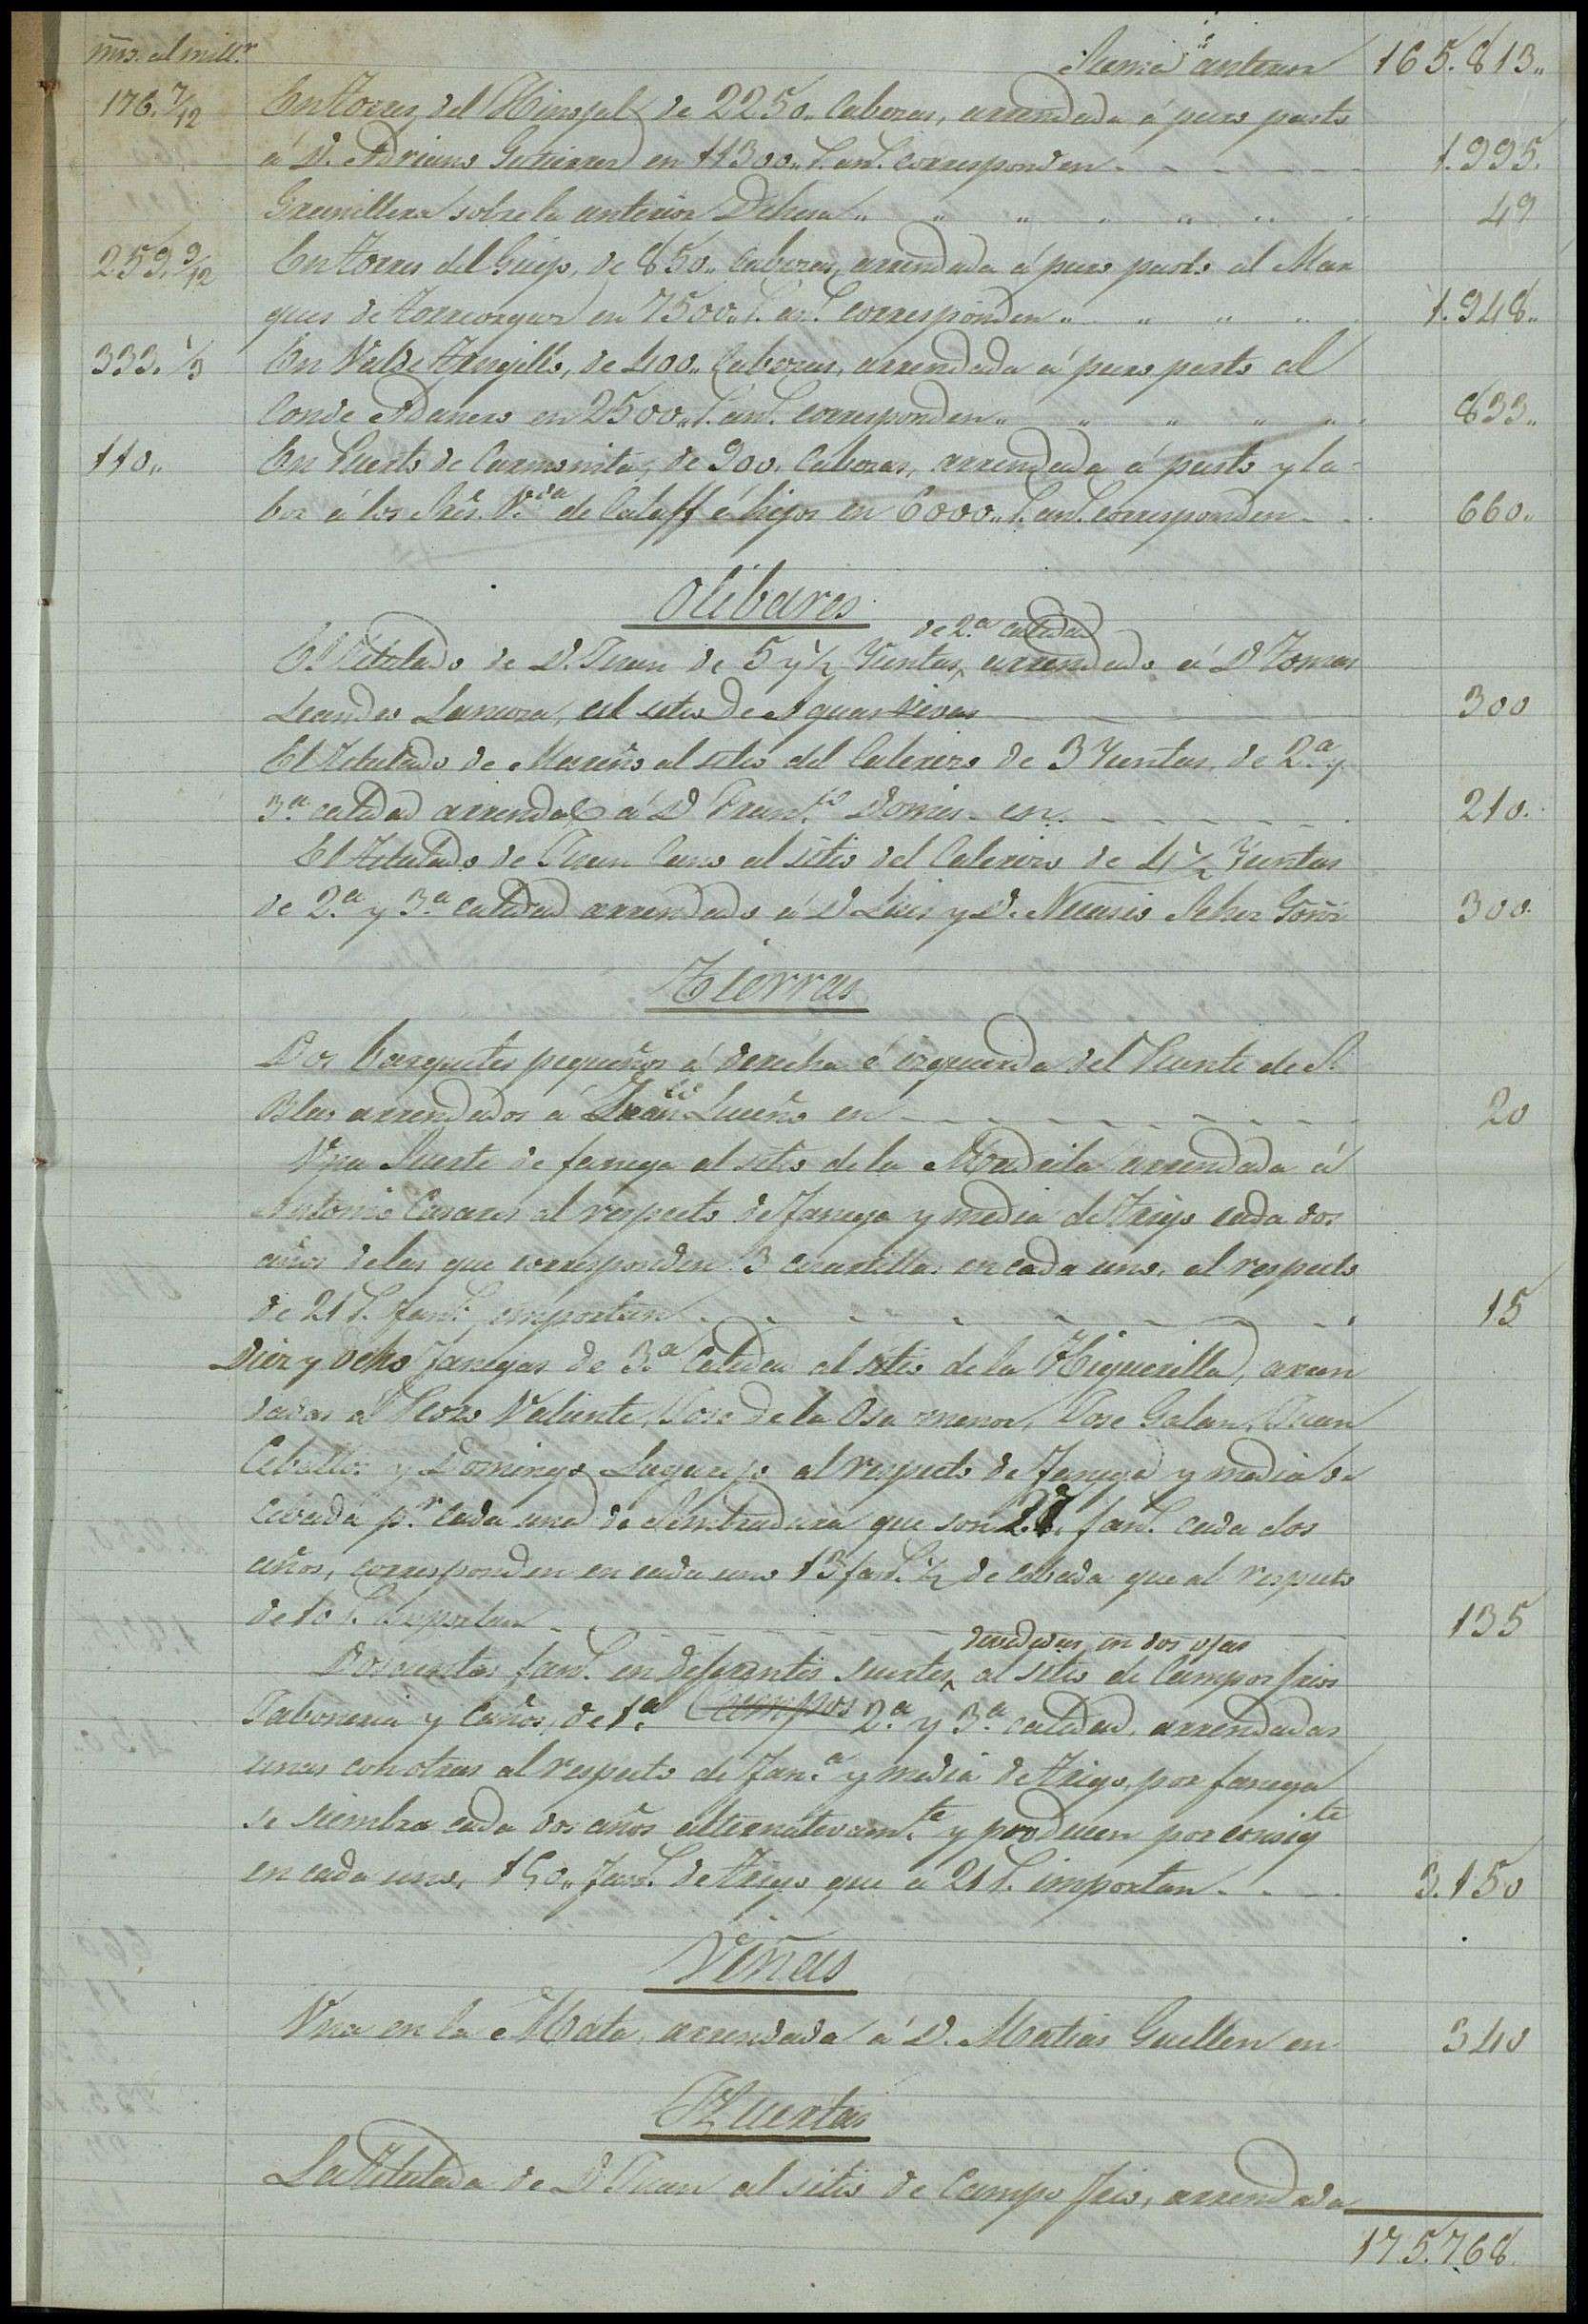 mrs. al mill.r Suma anterior 165.813,,
176. 7/12 En Torres del Hinojal de 2250,, Cabezas, arrendada á puro pasto
á D. Adriano Gutierrez en 11300,, r.s an.s corresponden 1.995.
Granillera sobre la anterior Dehesa,, 49
259. 9/12 En Torres del Guijo, de 850,, Cabezas, arrendada á puro pasto al Mar
ques de Torreorgaz en 7500,, r.s an.s corresponden,, 1.948,,
333. 1/3 En Valde Trugillo, de 400,, Cabezas, arrendada á puro pasto al
Conde Adanero en 2500,, r.s an.s corresponden,, 833,,
110,, En Puerto de Carmonita, de 900, Cabezas, arrendada á pasto y la-
bor á los Sres. V.da de Calaff é hijos en 6000,, r.s an.s corresponden 660,,
Olibares
de 2.a calidad
El Titulado de D. Juan de 5 y ½ Yuntas, arrendado á D Tomas
Leandro Lancora, al sitio de Aguas vivas 300
El Titulado de Mareño al sitio del Calerizo de 3 Yuntas, de 2.a y
3.a calidad arrendado á D Fran.co en 210.
El Titulado de Juan Cano al sitio del Calerizo de 4 ½ Yuntas
de 2.a y 3.a calidad arrendado á D Luis y D. Nicasio 300.
Tierras
Dos barquetes pequeños á derecha é izquierda del Puente de S.
Blas arrendados á Fran.co Luceño en 20
Una Suerte de fanega al sitio de la Madrila arrendada á
Antonio Casares al respecto de fanega y media de Trigo cada dos
años de las que corresponden 3 cuartillas en cada uno, al respecto
de 21 r.s fan.s importan 15
Diez y ocho fanegas de 3.a Calidad al sitio de la Higuerilla, arren
dadas á Pedro Valiente, Jose de la Osa menor, Jose Galan, Juan
Ceballos y Domingo Lagarejo al respecto de fanega y media de
cevada p.r cada una de Sembradura que son 27, fan.s cada dos
años, corresponden en cada uno 13 fan.s ½ de cebada que al respecto
de 10 r.s Importan 135
devididas en dos ojas
Doscientas fan.s en diferentes suertes, al sitio de Campos frios
Jaboneria y Caños, de 1.a Campos 2.a y 3.a calidad, arrendadas
unas con otras al respecto de fan.a y media de Trigo por fanega
se siembra cada dos años alternativam.te y producen por consig.te
en cada uno, 150,, fan.s de Trigo que á 21 r.s importan 3.150
Viñas
Una en la Mata, arrendada á D. Matias Guillen en 340
Huertas
La Titulada de D Juan al sitio de Campo frio, arrendada
175.768.